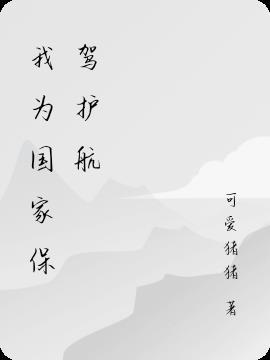 我为国家保
驾护航
可爱猪猪 著